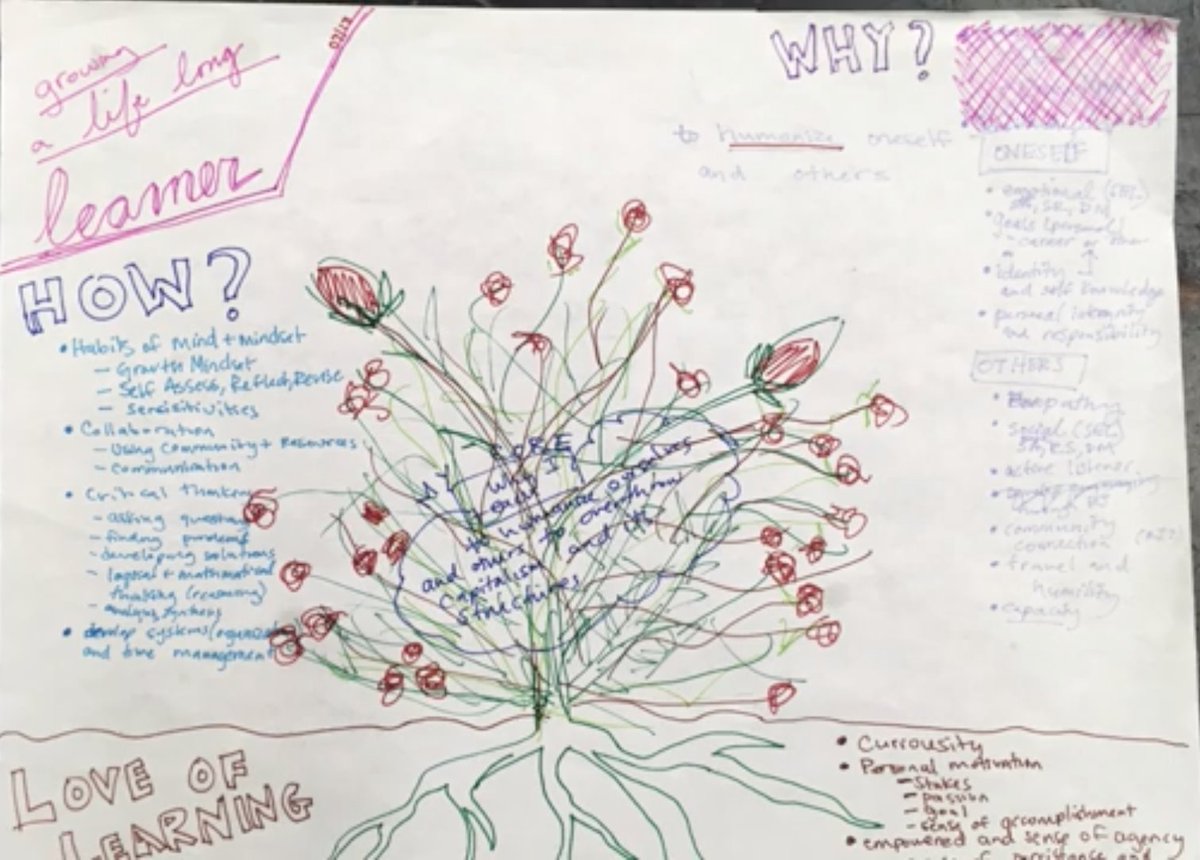 growing
a life long
learner
07/17
WHY?
to humanize oneself
and others
ONESELF
• emotional (SEL)
SA, SR, DM
• goals (personal)
- career or other
• identity
and self knowledge
• personal integrity
and responsibility
OTHERS
• Empathy
• social (SEL)
SA, RS, DM
• active listener
• community
connection
• travel and
humility
• capacity
HOW?
• Habits of Mind + mindset
- Growth Mindset
- Self Assess, Reflect, Revise
- sensitivities
• Collaboration
- Using Community + Resources
- communication
• Critical thinkers
- asking questions
- finding problems
- developing solutions
- logical + mathematical
thinking (reasoning)
- analysis, synthesis
• develop systems (organization
and time management
MY CORE
Why I
teach
to humanize ourselves
and others to overthrow
Capitalism and its
structures
LOVE OF
LEARNING
• Currousity
• Personal motivation
- Stakes
- passion
- goal
- sense of accomplishment
• empowered and sense of agency